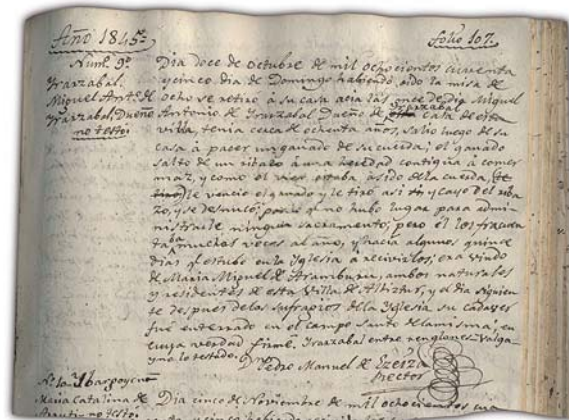 Año 1845=
folio 107.
Num. 9º
Yrarzabal.
Miguel Antº. de
Yrarzabal, Dueño
no testó.
Dia doce de octubre de mil ochocientos cuarenta
y cinco dia de Domingo habiendo oido la misa de
ocho se retiró á su casa acia las once de dia Miguel
Yrarzabal
Antonio de Yrarzabal Dueño de esta casa de esta
villa, tenia cerca de ochenta años, salio luego de su
casa á pacer un ganado de su cuerda; el ganado
saltó de un ribazo á una heredad contigua á comer
maz, y como el viejo estaba asido de la cuerda,
le vencio el ganado y le tiró asi y cayó del riba
zo, y se desnucó; por lo q. no hubo lugar para admi-
nistrarle ningun sacramento; pero él los frecuen
taba muchas veces al año, y hacia algunos quince
dias q. estubo en la Yglesia a recivirlos; era viudo
de Maria Miguel de Aramburu, ambos naturales
y residentes de esta Villa de Albiztur, y el dia siguien
te despues de los sufragios de la Yglesia su cadaver
fue enterrado en el campo santo de la misma; en
cuya verdad firmé. Yrarzabal entre renglones = Valga
y no lo testado. =
Dn Pedro Manuel de Ezeiza
Rector
Nº 10.
Maria Catalina de
no testó.
Dia cinco de Noviembre de mil ochocientos